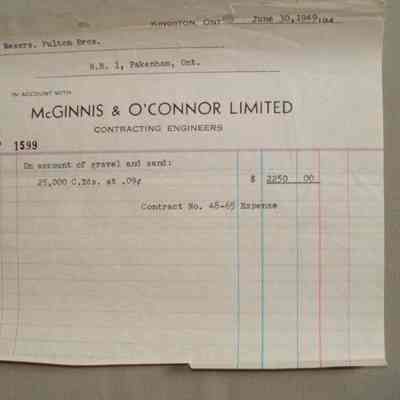 Kingston, Ont. June 30, 1949, 194
Messrs. Fulton Bros.
R.R. 1, Pakenham, Ont.
IN ACCOUNT WITH
McGINNIS & O'CONNOR LIMITED
CONTRACTING ENGINEERS
1599
On account of gravel and sand:
25,000 C.Yds. at .09¢ $ 2250 00
Contract No. 48-65 Expense